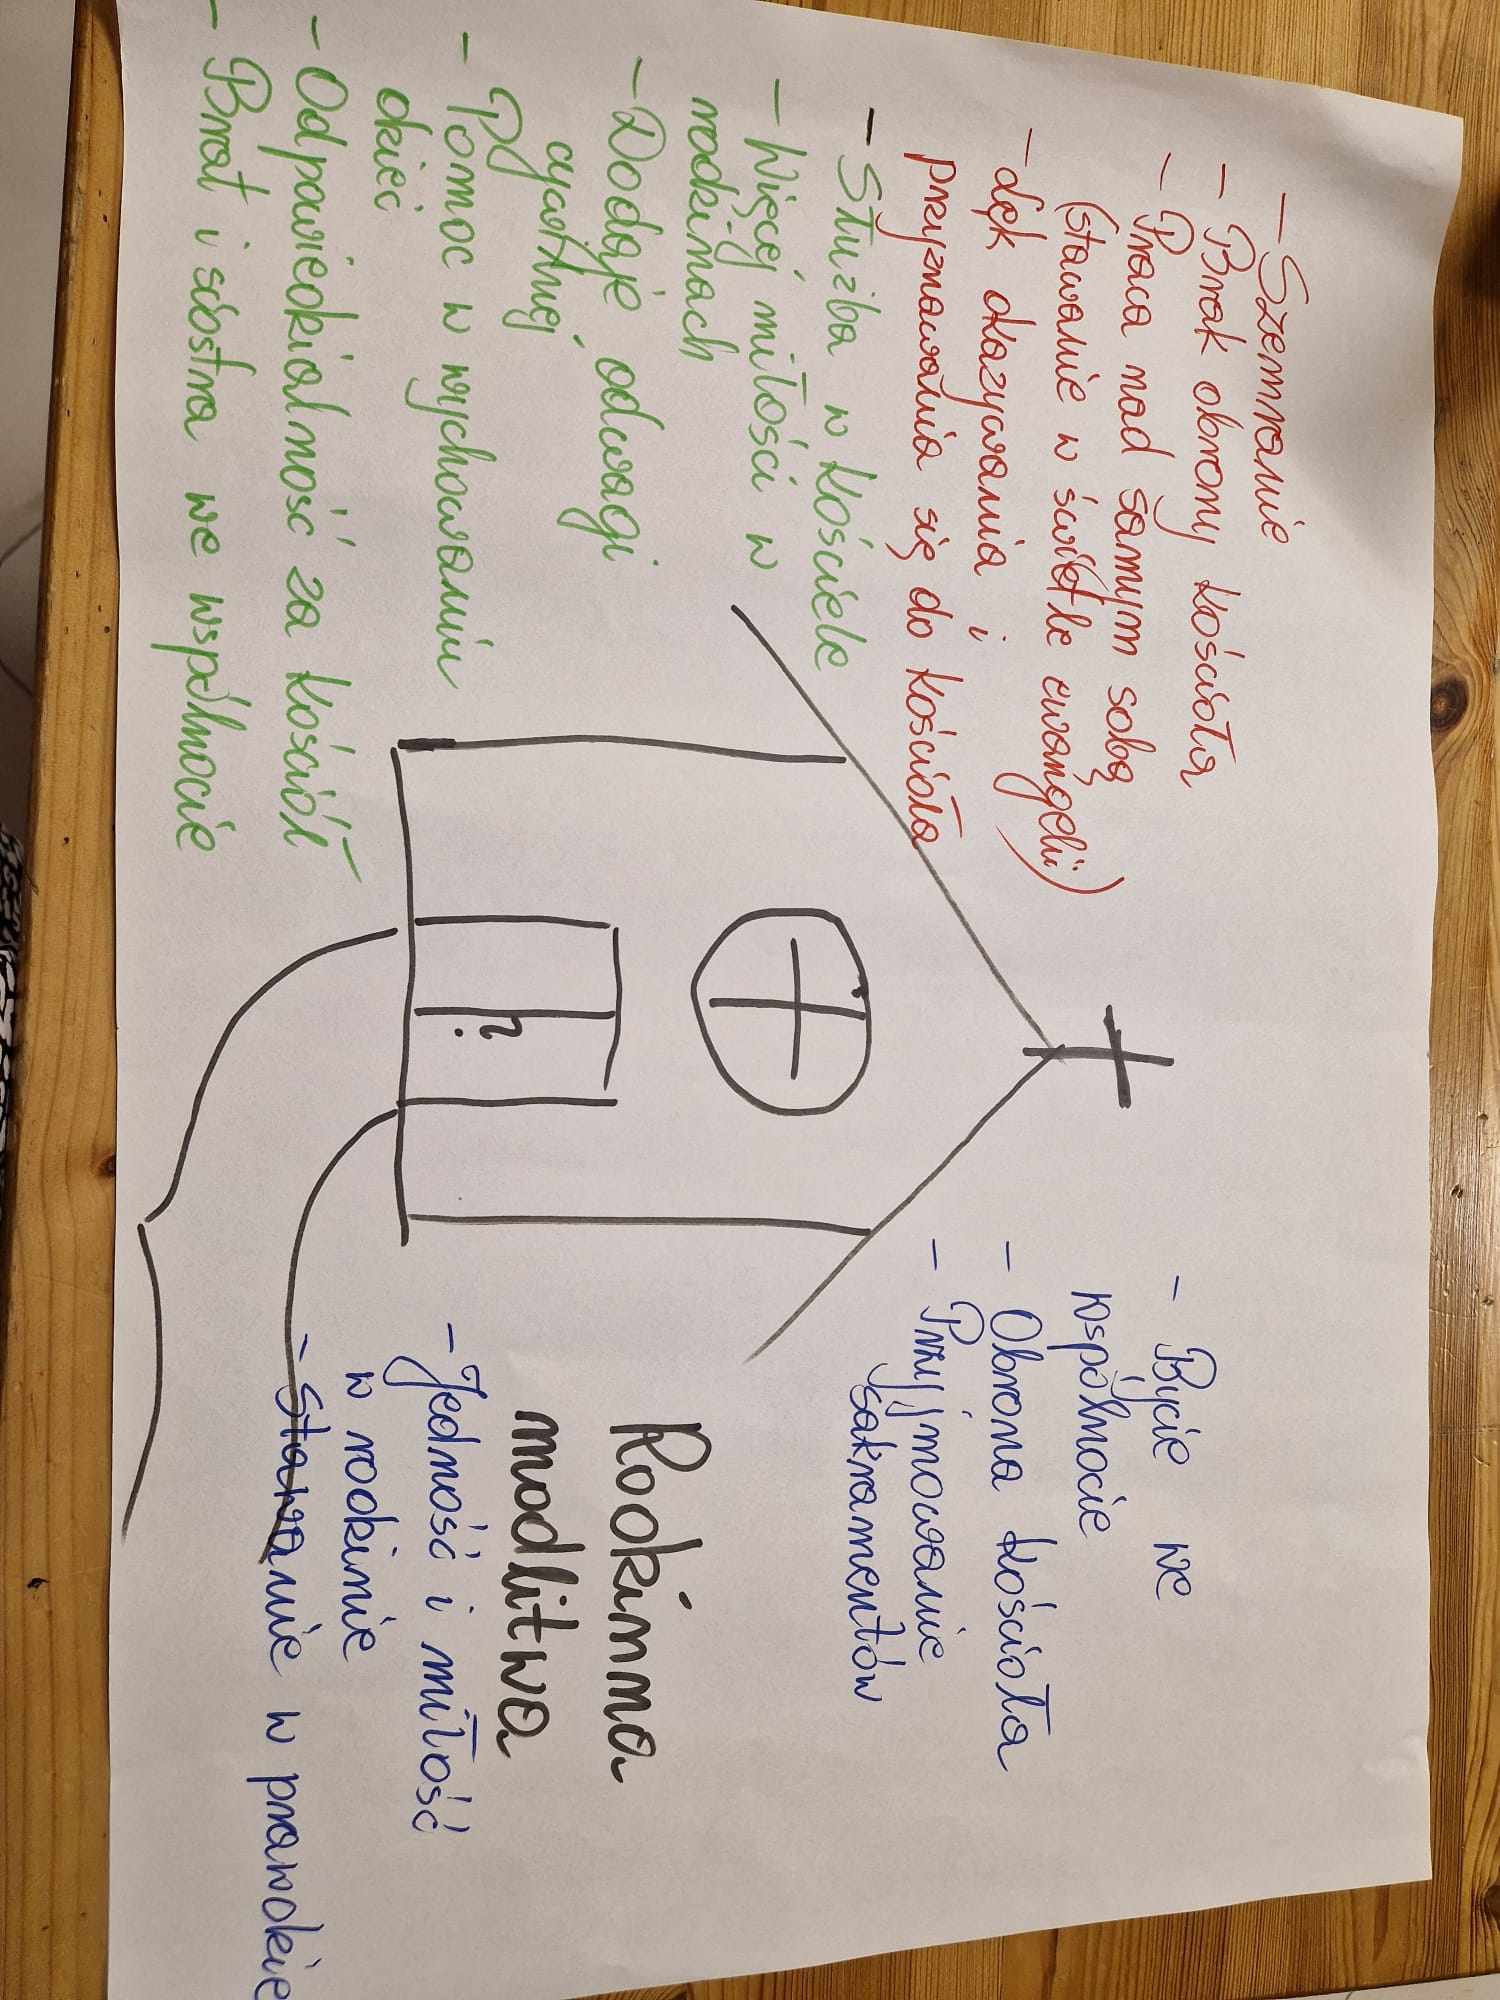 - Szemranie
- Brak obrony kościoła
- Praca nad samym sobą
(stawanie w świetle ewangelii)
- Lęk okazywania i
przyznawania się do kościoła
- Służba w kościele
- Więcej miłości w
rodzinach
- Dodaje odwagi
cywilnej
- Pomoc w wychowaniu
dzieci
- Odpowiedzialność za kościół
- Brat i siostra we wspólnocie
?
- Bycie we
wspólnocie
- Obrona kościoła
- Przyjmowanie
sakramentów
Rodzinna
modlitwa
- Jedność i miłość
w rodzinie
- stawanie w prawdzie